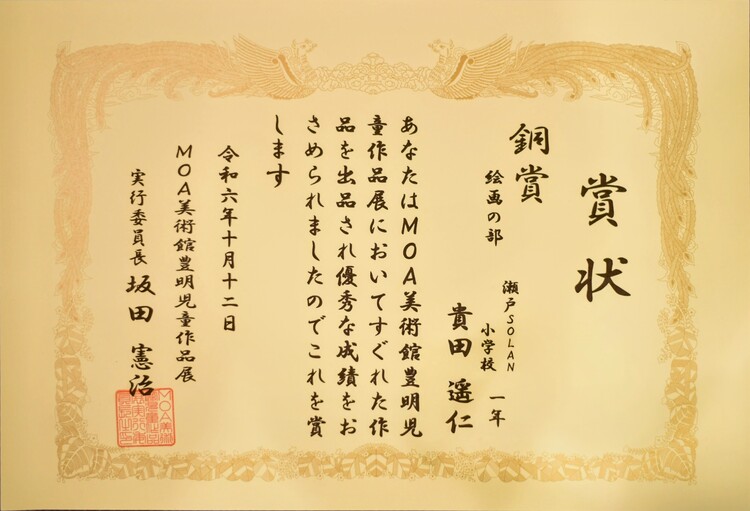 賞状
銅賞
絵画の部
瀬戸SOLAN
小学校 一年
貴田 遥仁
あなたはMOA美術館豊明児
童作品展においてすぐれた作
品を出品され優秀な成績をお
さめられましたのでこれを賞
します
令和六年十月十二日
MOA美術館豊明児童作品展
実行委員長 坂田 憲治